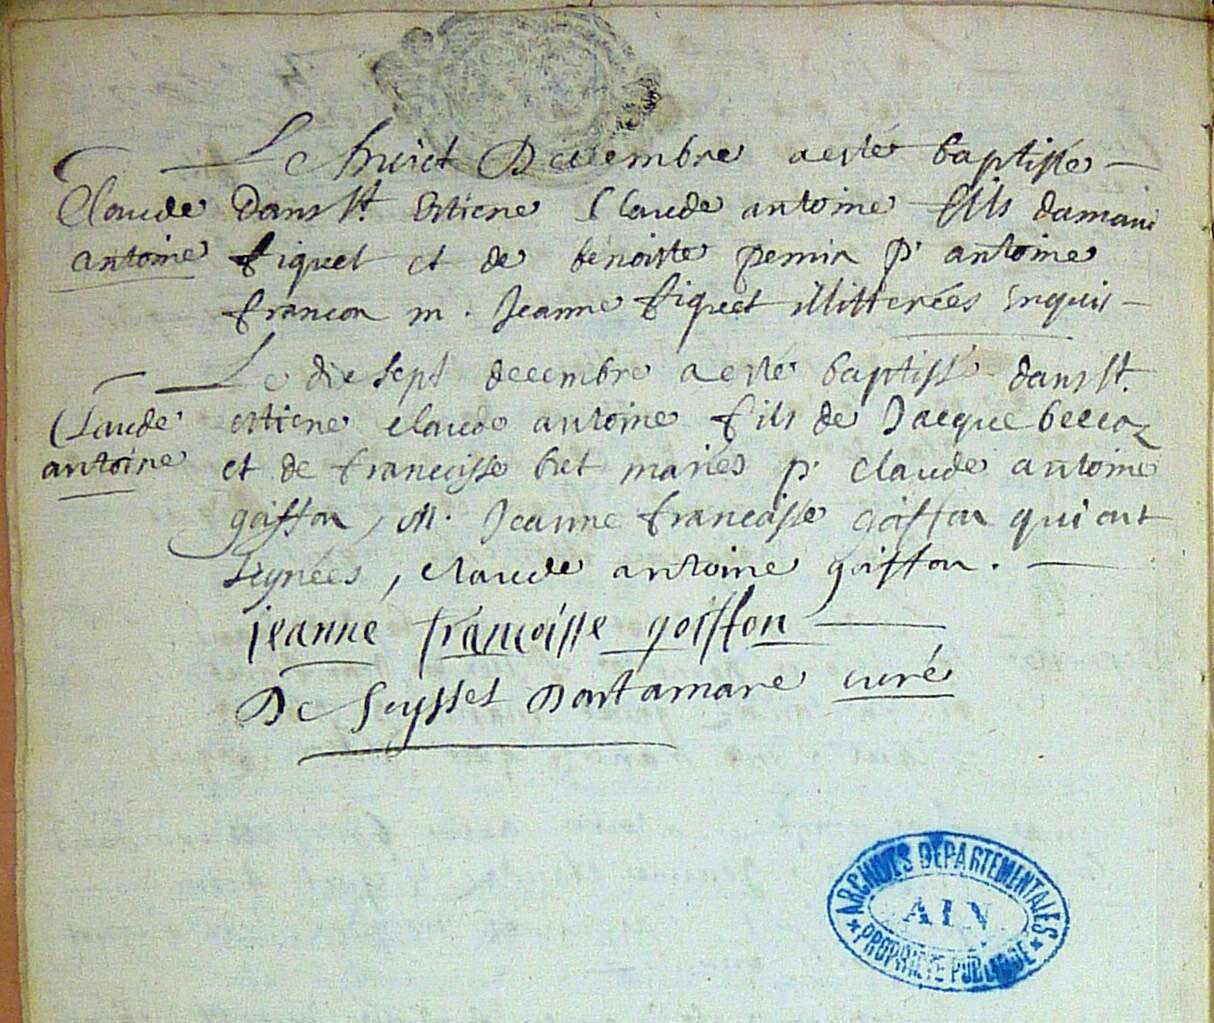 Le huict Decembre a esté baptisé
Claude Dans St. Estiene Claude antoine fils damani
antoine fiquet et de benoiste pemin p. antoine
francon m. Jeanne fiquet illitterées Enquis
Le dix sept decembre a esté baptisé dans St.
Claude estiene claude antoine fils de Jacque beccoz
antoine et de francoisse bret mariés p. claude antoine
goiffon, M. Jeanne francoisse goiffon qui ont
signées, claude antoine goiffon.
jeanne francoisse goiffon
De Seyssel Dartamare curé
ARCHIVES DÉPARTEMENTALES
AIN
PROPRIÉTÉ PUBLIQUE